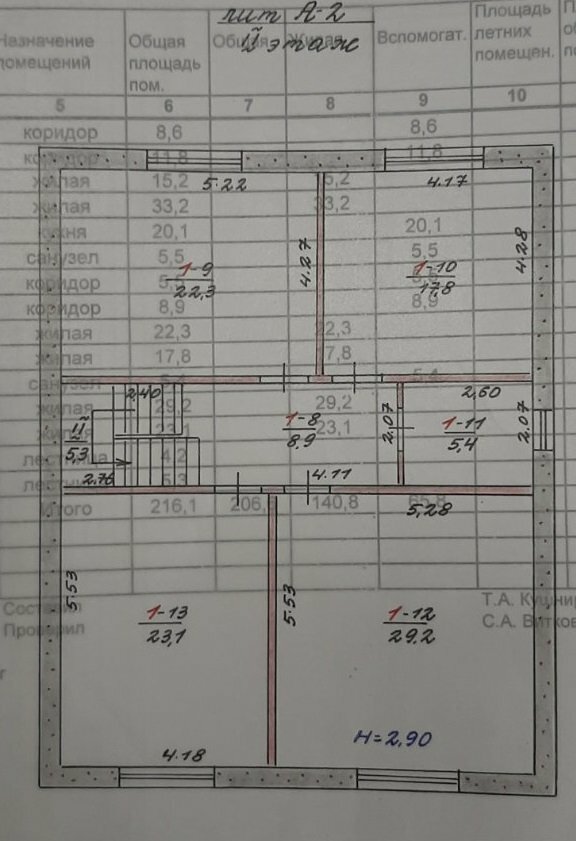 лит А-2
IIй этаж
Назначение помещений
Общая площадь пом.
Общая
Жилая
Вспомогат.
Площадь летних помещен.
5 6 7 8 9 10
коридор 8,6 8,6
коридор 11,8 11,8
жилая 15,2 15,2
жилая 33,2 33,2
кухня 20,1 20,1
санузел 5,5 5,5
коридор
коридор 8,9 8,9
жилая 22,3 22,3
жилая 17,8 17,8
санузел 5,4 5,4
жилая 29,2 29,2
жилая 23,1 23,1
лестница 4,2
лестница 5,3
Итого 216,1 206, 140,8 65,8
5.22
4.17
4.27
4.28
1-9
22,3
1-10
17,8
2,40
2,60
IIй
5,3
1-8
8,9
2,07
1-11
5,4
2,07
2,76
4.11
5,28
5.53
5.53
1-13
23,1
1-12
29.2
H=2,90
4.18
Составил
Проверил
Т.А. Кушнир
С.А. Витков